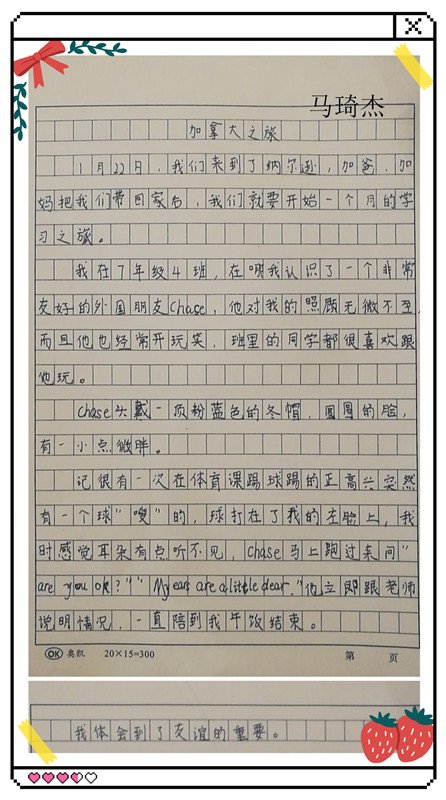 马琦杰
加拿大之旅
1月22日，我们来到了纳尔逊，加爸、加
妈把我们带回家后，我们就要开始一个月的学
习之旅。
我在7年级4班，在哪我认识了一个非常
友好的外国朋友Chase，他对我的照顾无微不至，
而且他也经常开玩笑，班里的同学都很喜欢跟
他玩。
Chase头戴一顶粉蓝色的冬帽，圆圆的脸，
有一小点微胖。
记很有一次在体育课踢球踢的正高兴突然
有一个球“嗖”的，球打在了我的左脸上，我
时感觉耳朵有点听不见，Chase马上跑过来问“
are you ok？”“My ears are a little dear.”他立即跟老师
说明情况，一直陪到我午饭结束。
OK 奥凯 20×15=300 第 页
我体会到了友谊的重要。